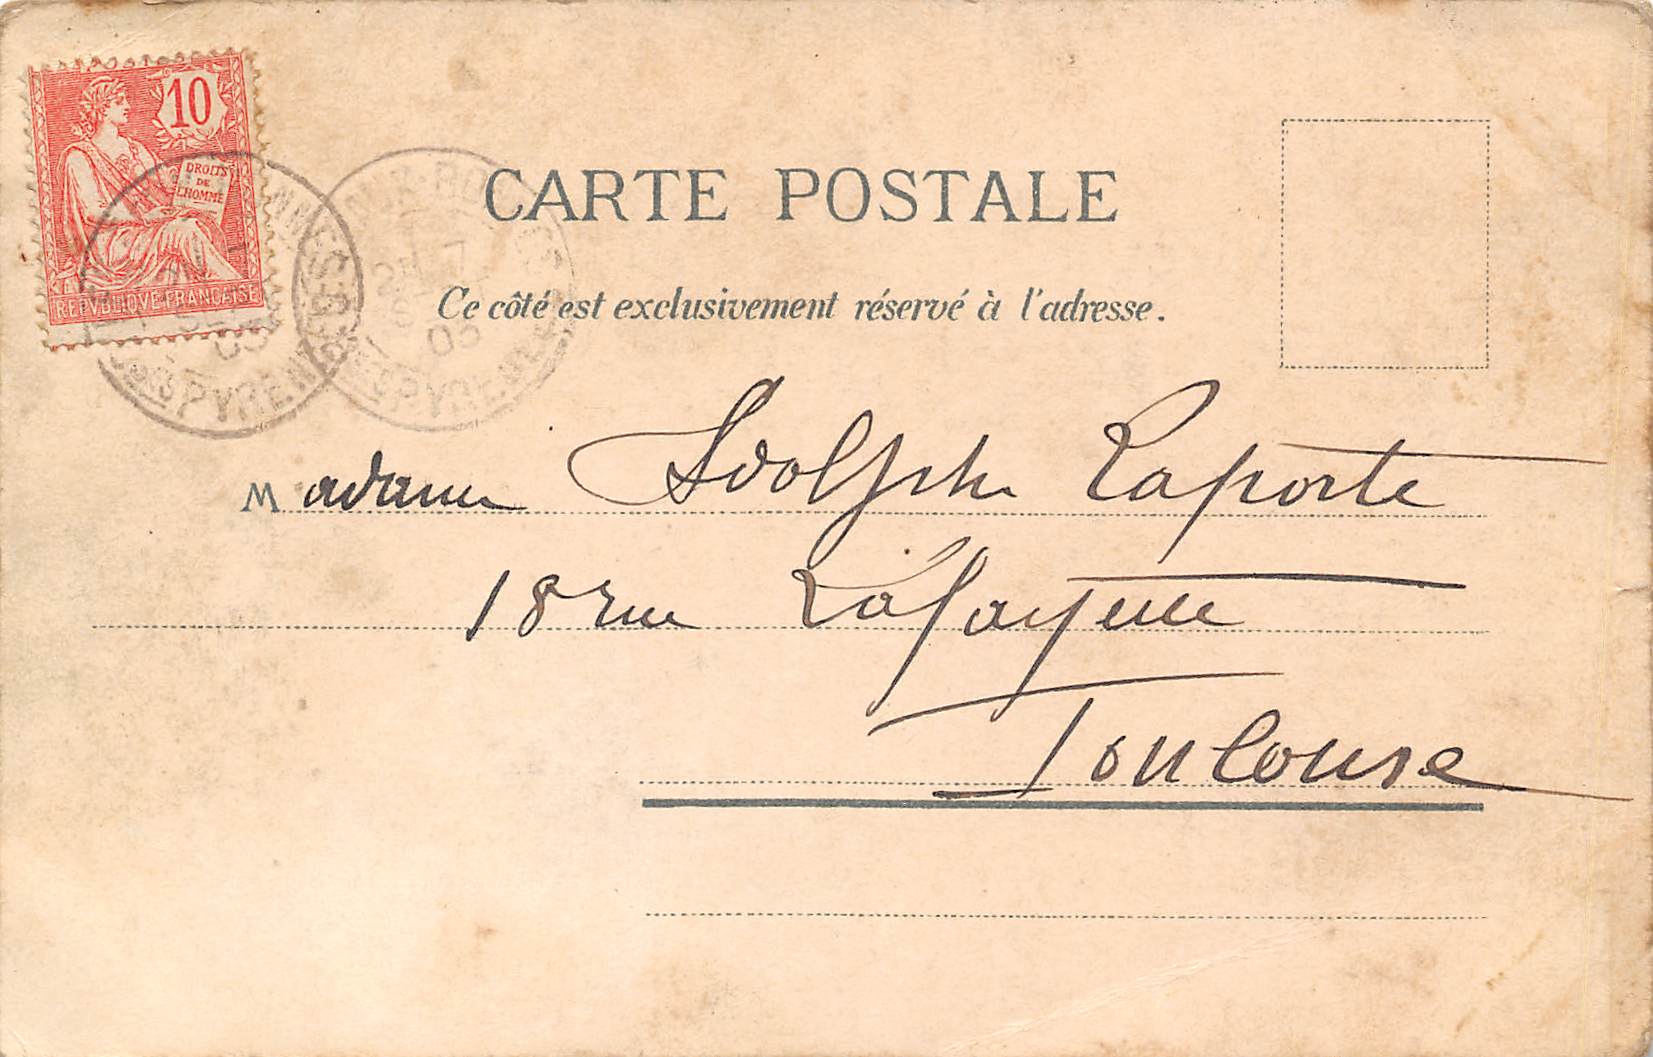 10
DROITS
DE
L'HOMME
REPVBLIQVE FRANCAISE
CARTE POSTALE
Ce côté est exclusivement réservé à l'adresse.
Madame Adolphe Laporte
18 rue Lafayette
Toulouse